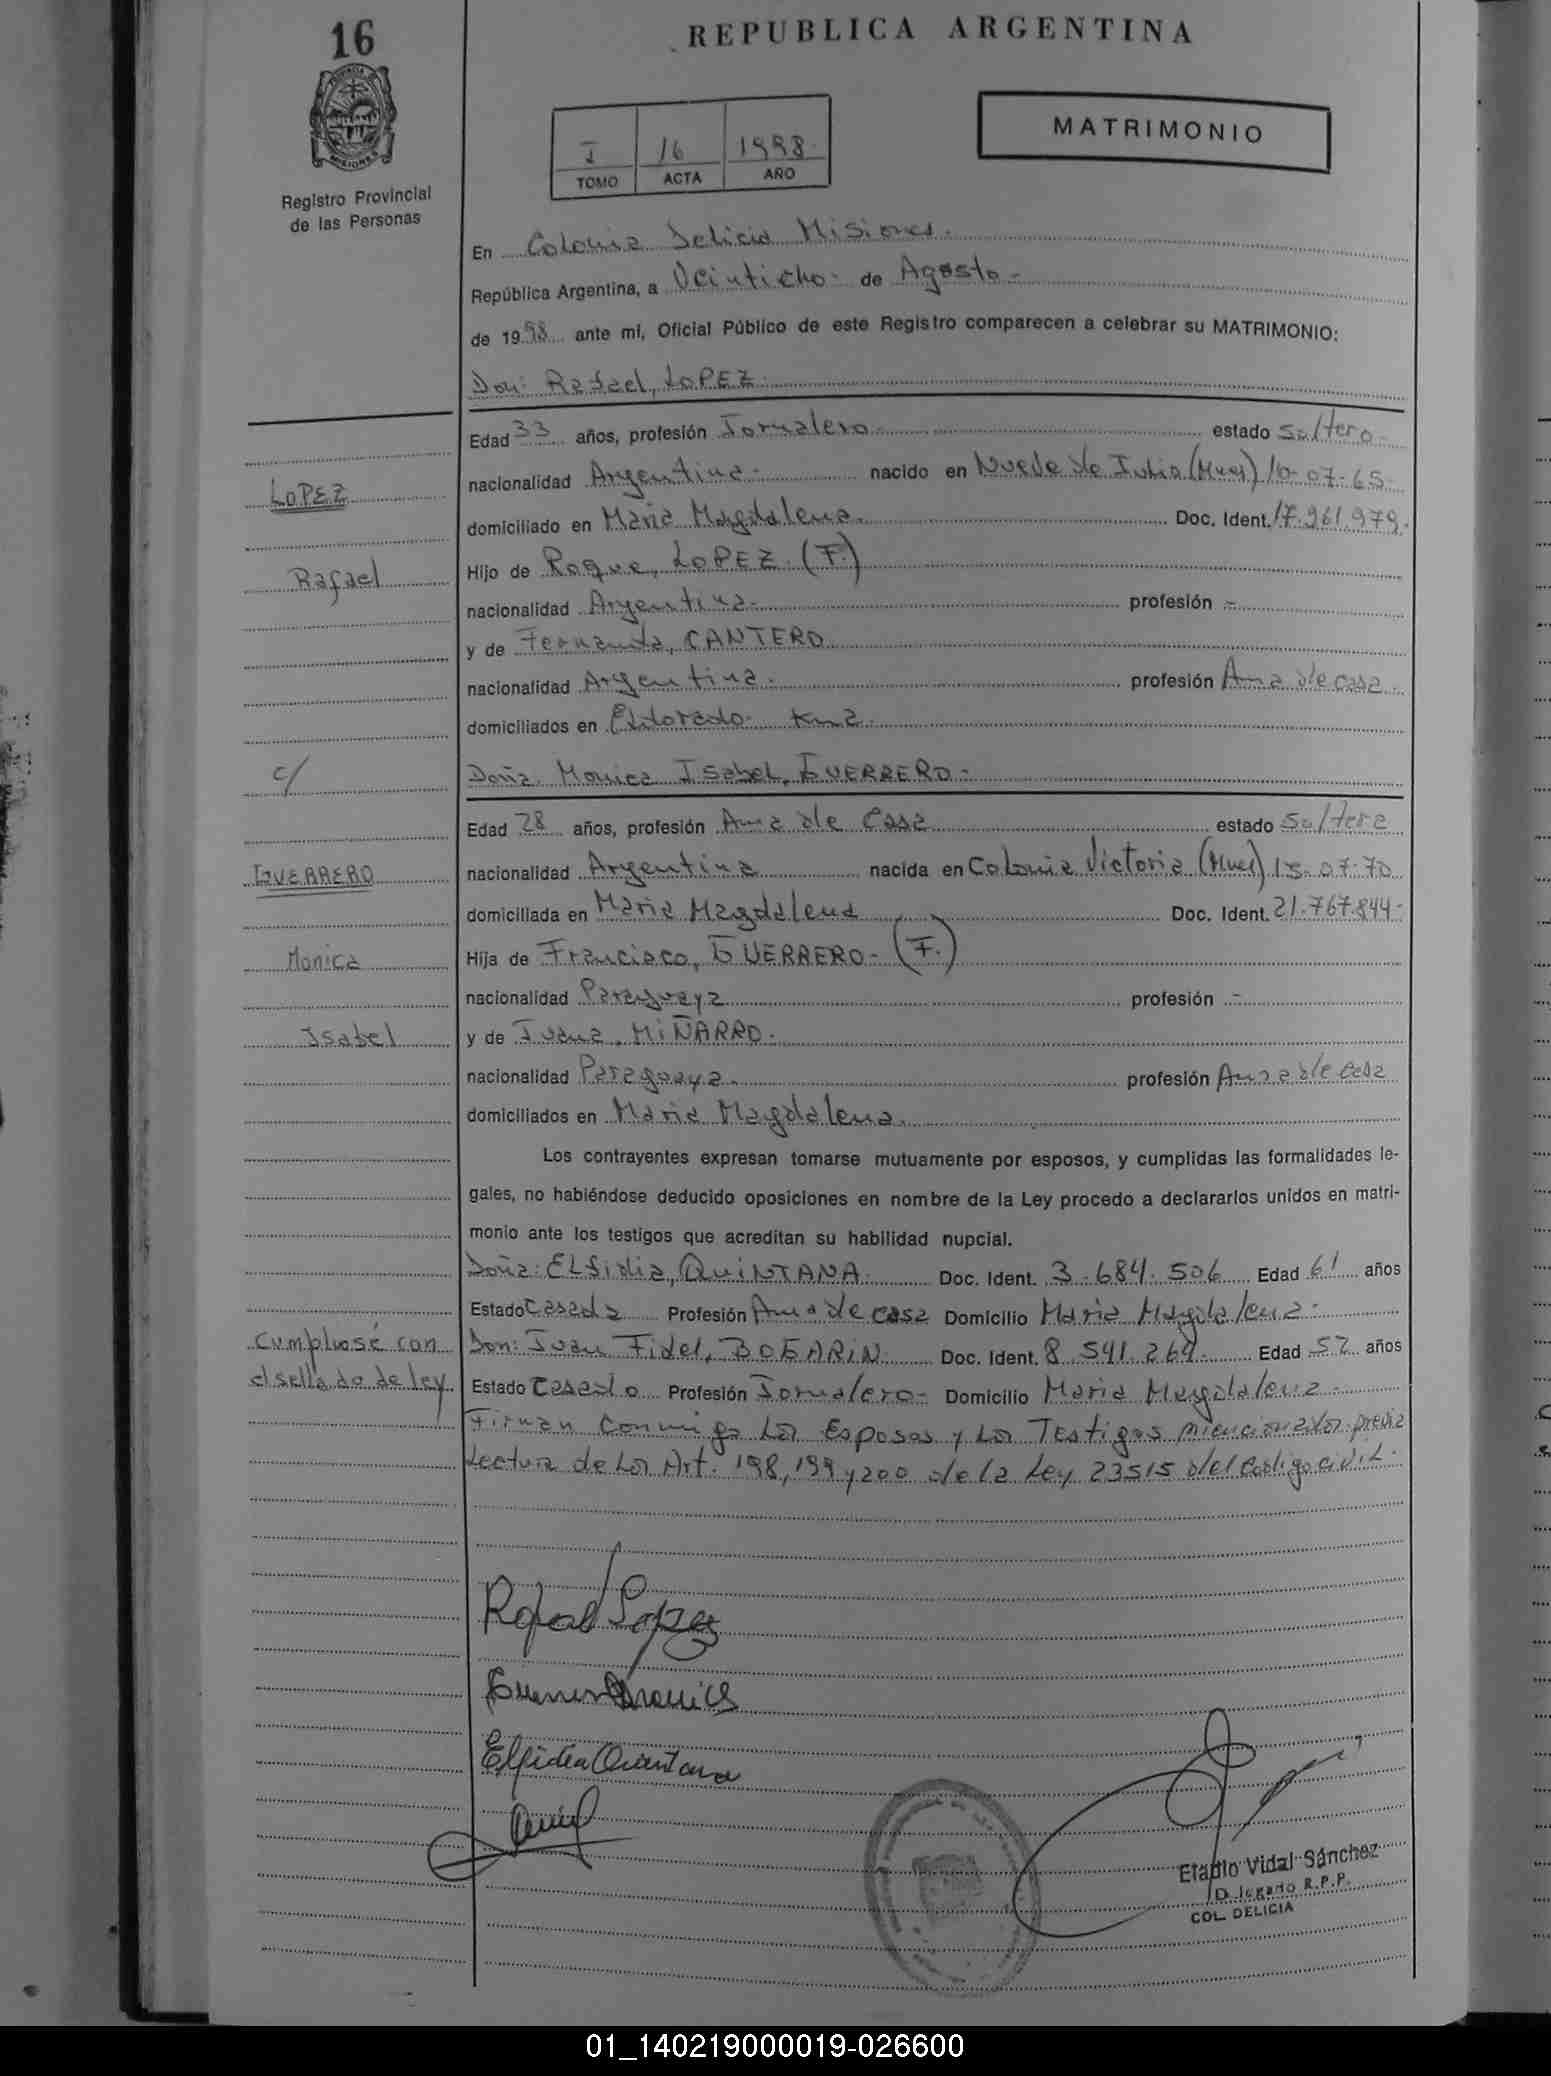 16
REPUBLICA ARGENTINA
PROVINCIA DE
MISIONES
Registro Provincial
de las Personas
I 16 1998
TOMO ACTA AÑO
MATRIMONIO
En Colonia Delicia Misiones.
República Argentina, a Veinticho- de Agosto-
de 1998 ante mí, Oficial Público de este Registro comparecen a celebrar su MATRIMONIO:
Don: Rafael, LOPEZ.
Edad 33 años, profesión Jornalero estado soltero-
LOPEZ
nacionalidad Argentina- nacido en Nueve de Julio (Mnes) 10-07-65-
domiciliado en Maria Magdalena. Doc. Ident. 17.961.979.
Rafael
Hijo de Roque, LOPEZ. (F.)
nacionalidad Argentina- profesión -
y de Fernanda, CANTERO
nacionalidad Argentina. profesión Ama de casa.
domiciliados en Eldorado- Km 2.
c/
Doña. Monica Isabel, GUERRERO-
Edad 28 años, profesión Ama de Casa estado soltera
GUERRERO
nacionalidad Argentina nacida en Colonia Victoria (Mnes) 15-07-70
domiciliada en Maria Magdalena Doc. Ident. 21.767.844-
Monica
Hija de Francisco, GUERRERO- (F.)
nacionalidad Paraguaya profesión -
Isabel
y de Juana, MIÑARRO.
nacionalidad Paraguaya. profesión Ama de Casa
domiciliados en Maria Magdalena.
Los contrayentes expresan tomarse mutuamente por esposos, y cumplidas las formalidades le-
gales, no habiéndose deducido oposiciones en nombre de la Ley procedo a declararlos unidos en matri-
monio ante los testigos que acreditan su habilidad nupcial.
Doña: ELfidia, QUINTANA. Doc. Ident. 3.684.506 Edad 61 años
Estado Casada Profesión Ama de casa Domicilio Maria Magdalena-
Cumpliose con
Don: Juan Fidel, BOGARIN Doc. Ident. 8.541.264. Edad 52 años
el sellado de ley
Estado Casado Profesión Jornalero- Domicilio Maria Magdalena-
Firman conmigo Los Esposos y Los Testigos mencionados previa
Lectura de Los Art. 198, 199 y 200 de la Ley 23515 del Codigo civil.
Rafael Lopez
Guerrero Monica
Elfidia Quintana
Eladio Vidal Sánchez
Delegado R.P.P.
COL. DELICIA
01_140219000019-026600